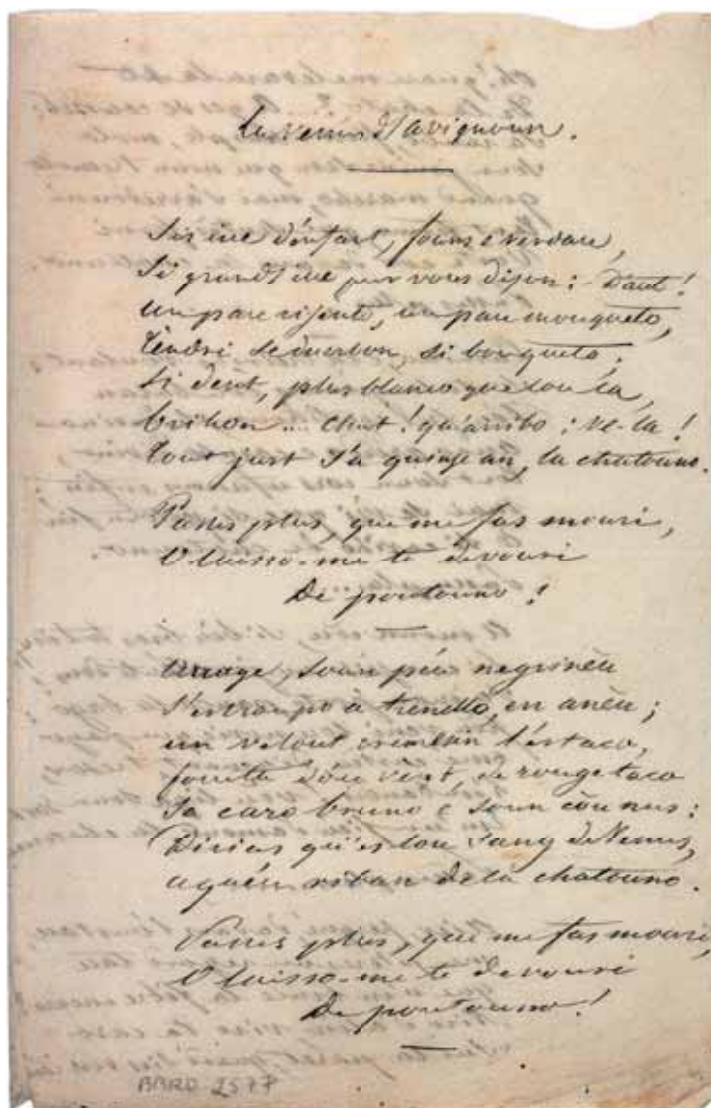 La Venus d'avignoun.
Sis iue d'enfant, founs e verdau,
Si grands iue pur vous dison: Daut!
un pau risento, un pau mouqueto,
Tèndri se duerbon, si bouqueto;
Si dent, plus blanco que lou la,
brihon... Chut! qu'arribo: ve-la!
Tout just s'a quinge an, la chatouno.
Passes plus, que me fas mouri,
O laisso-me te devouri
De poutouno!
Urouge, soun péu negrinèu
S'estroupo a treneto, en anèu;
un velout cremesin l'estaco,
fouita dóu vent, de rouge taco
Sa caro bruno e soun còu nus:
Dirias qu'es lou sang de Venus,
aquéu riban de la chatouno.
Passes plus, que me fas mouri,
O laisso-me te devouri
De poutouno!
BARO 2577